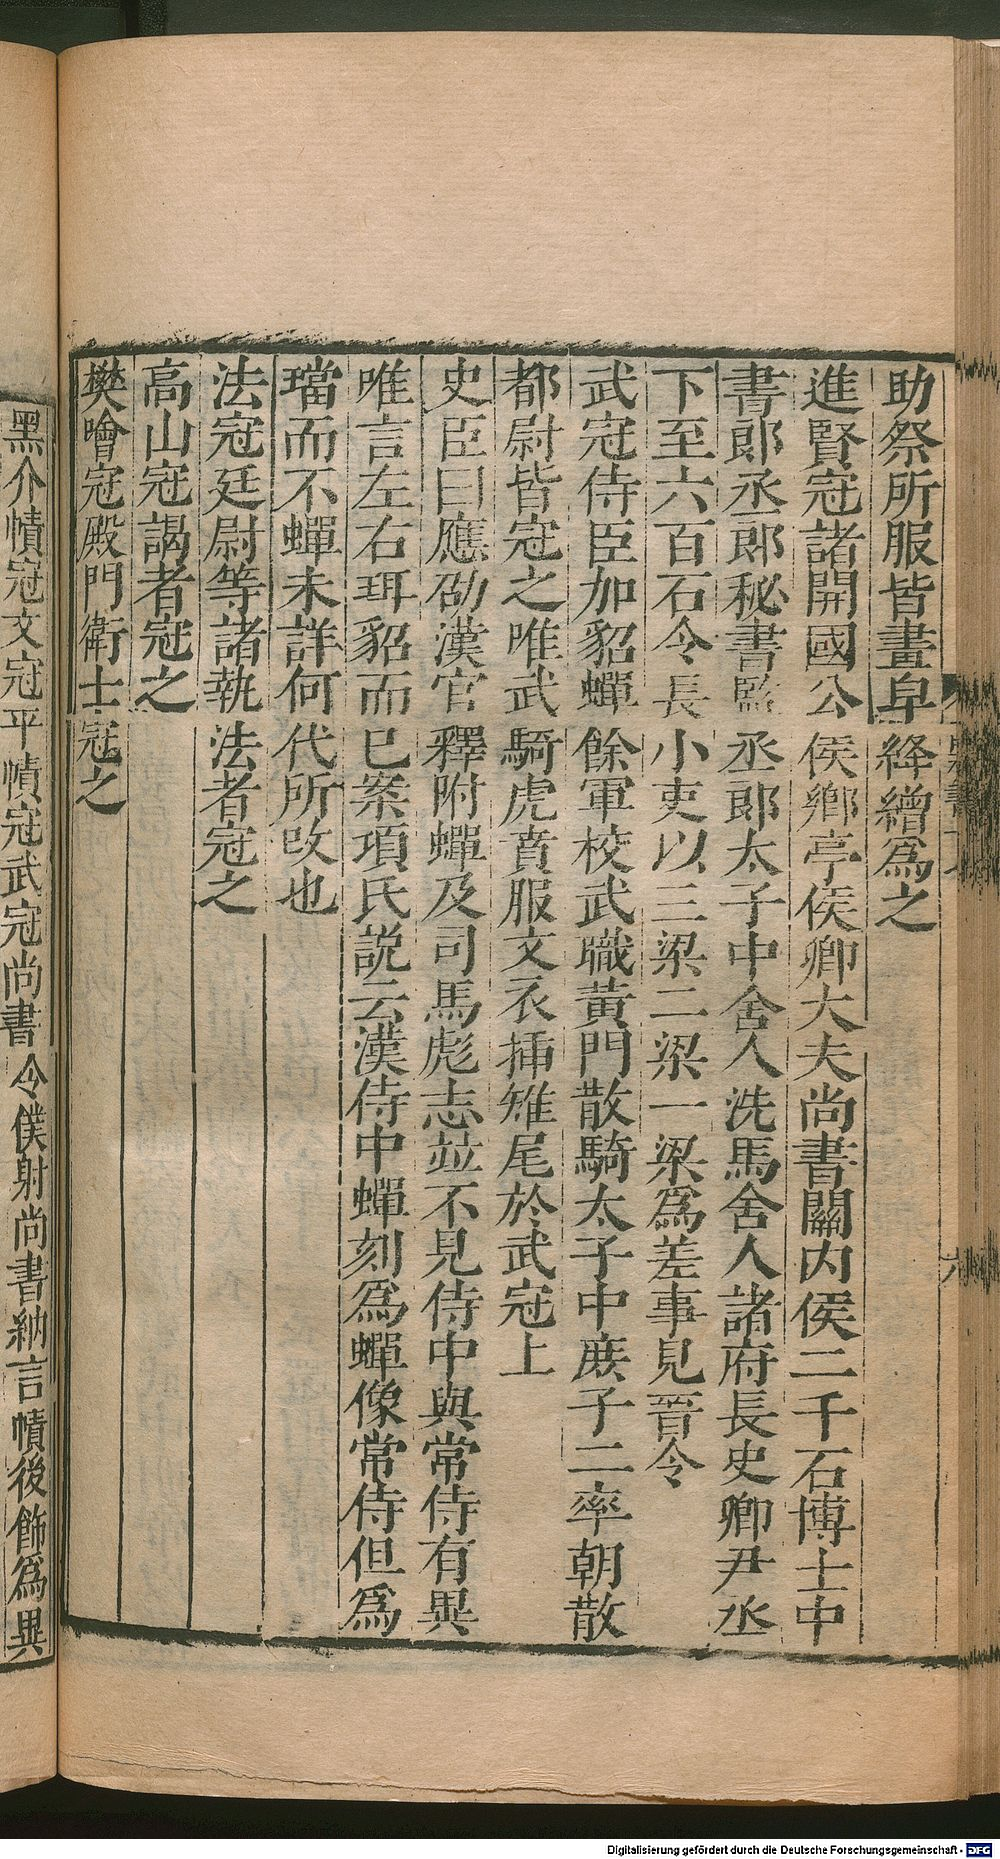 助祭所服皆畫皁絳繒爲之
進賢冠諸開國公侯鄉亭侯卿大夫尚書關內侯二千石博士中
書郎丞郎秘書監丞郎太子中舍人洗馬舍人諸府長史卿尹丞
下至六百石令長小吏以三梁二梁一梁爲差事見晉令
武冠侍臣加貂蟬餘軍校武職黃門散騎太子中庶子二率朝散
都尉皆冠之唯武騎虎賁服文衣揷雉尾於武冠上
史臣曰應劭漢官釋附蟬及司馬彪志並不見侍中與常侍有異
唯言左右珥貂而已案項氏説云漢侍中蟬刻爲蟬像常侍但爲
璫而不蟬未詳何代所改也
法冠廷尉等諸執法者冠之
高山冠謁者冠之
樊噲冠殿門衛士冠之
黑介幘冠文冠平幘冠武冠尚書令僕射尚書納言幘後飾爲異
六
Digitalisierung gefördert durch die Deutsche Forschungsgemeinschaft - DFG